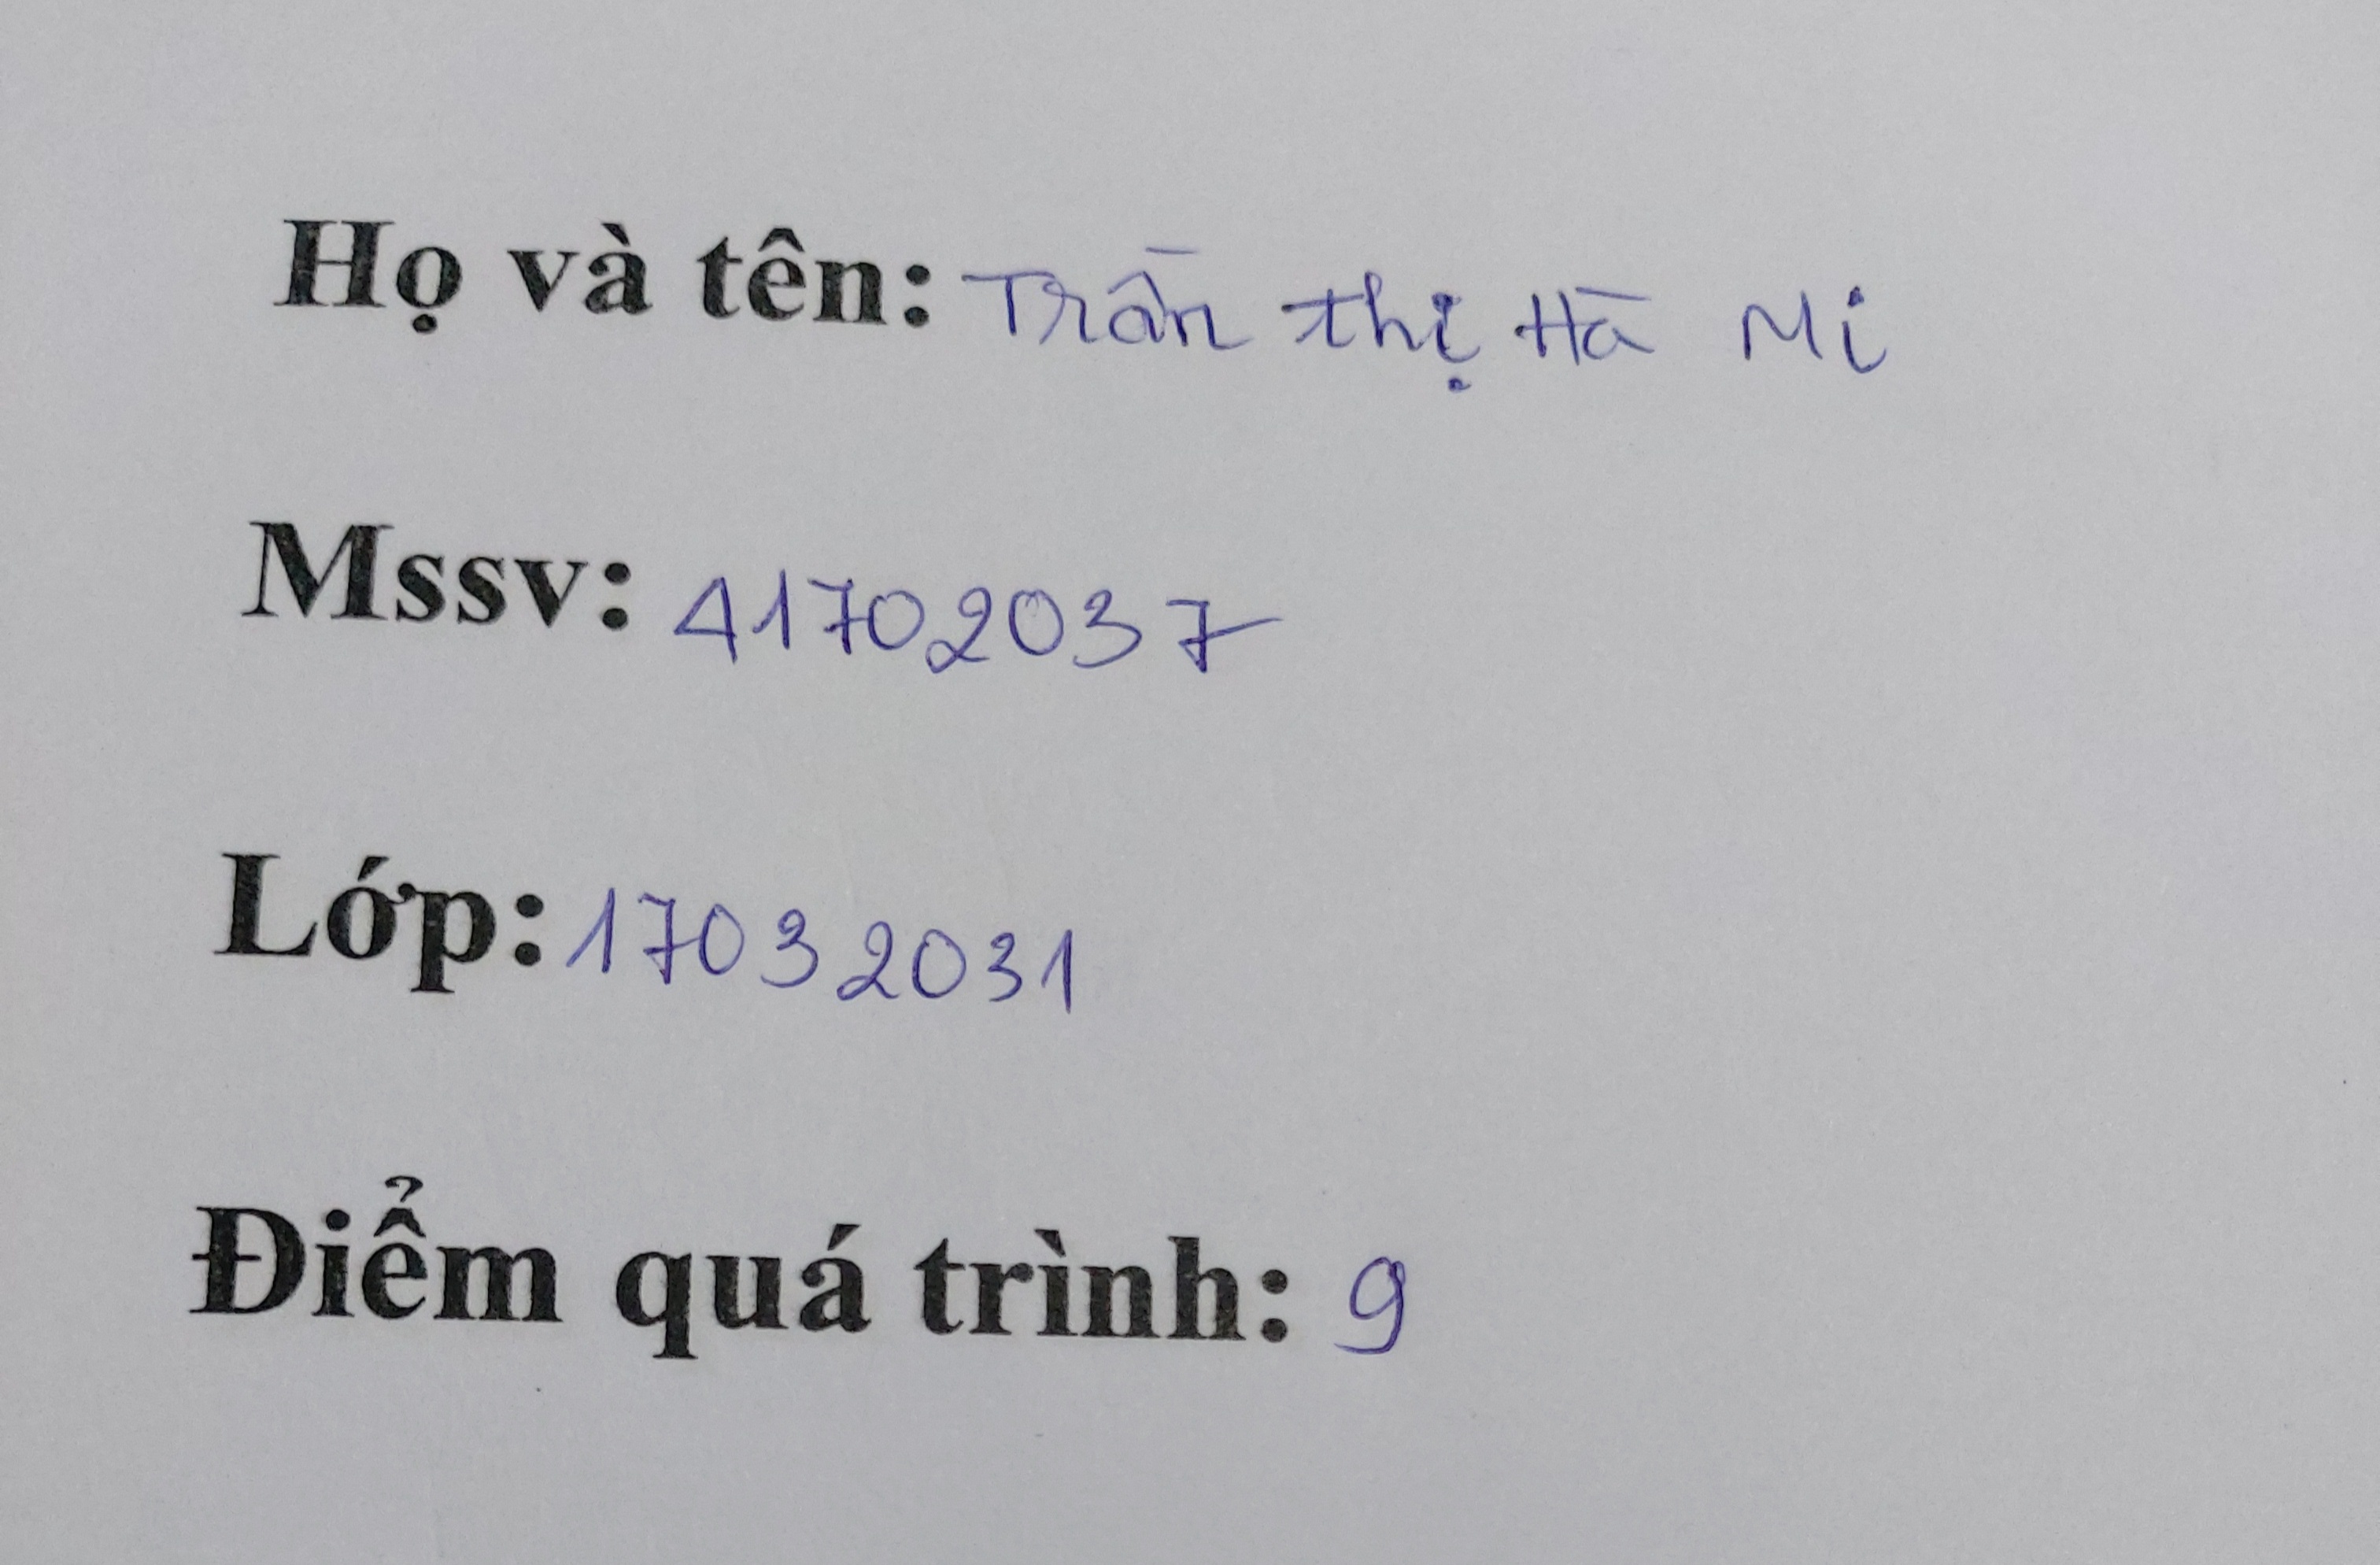 Họ và tên: Trần Thị Hà Mi
Mssv: 41702037
Lớp: 17032031
Điểm quá trình: 9